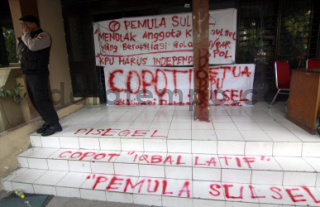 PEMULA SULSEL
MENOLAK Anggota K SULSEL
yang Berafiliasi
POL
KPU HARUS INDEPEND
COPOT KETUA
SULSEL
DISEGEL
COPOT "IQBAL LATIF"
"PEMULA SULSEL